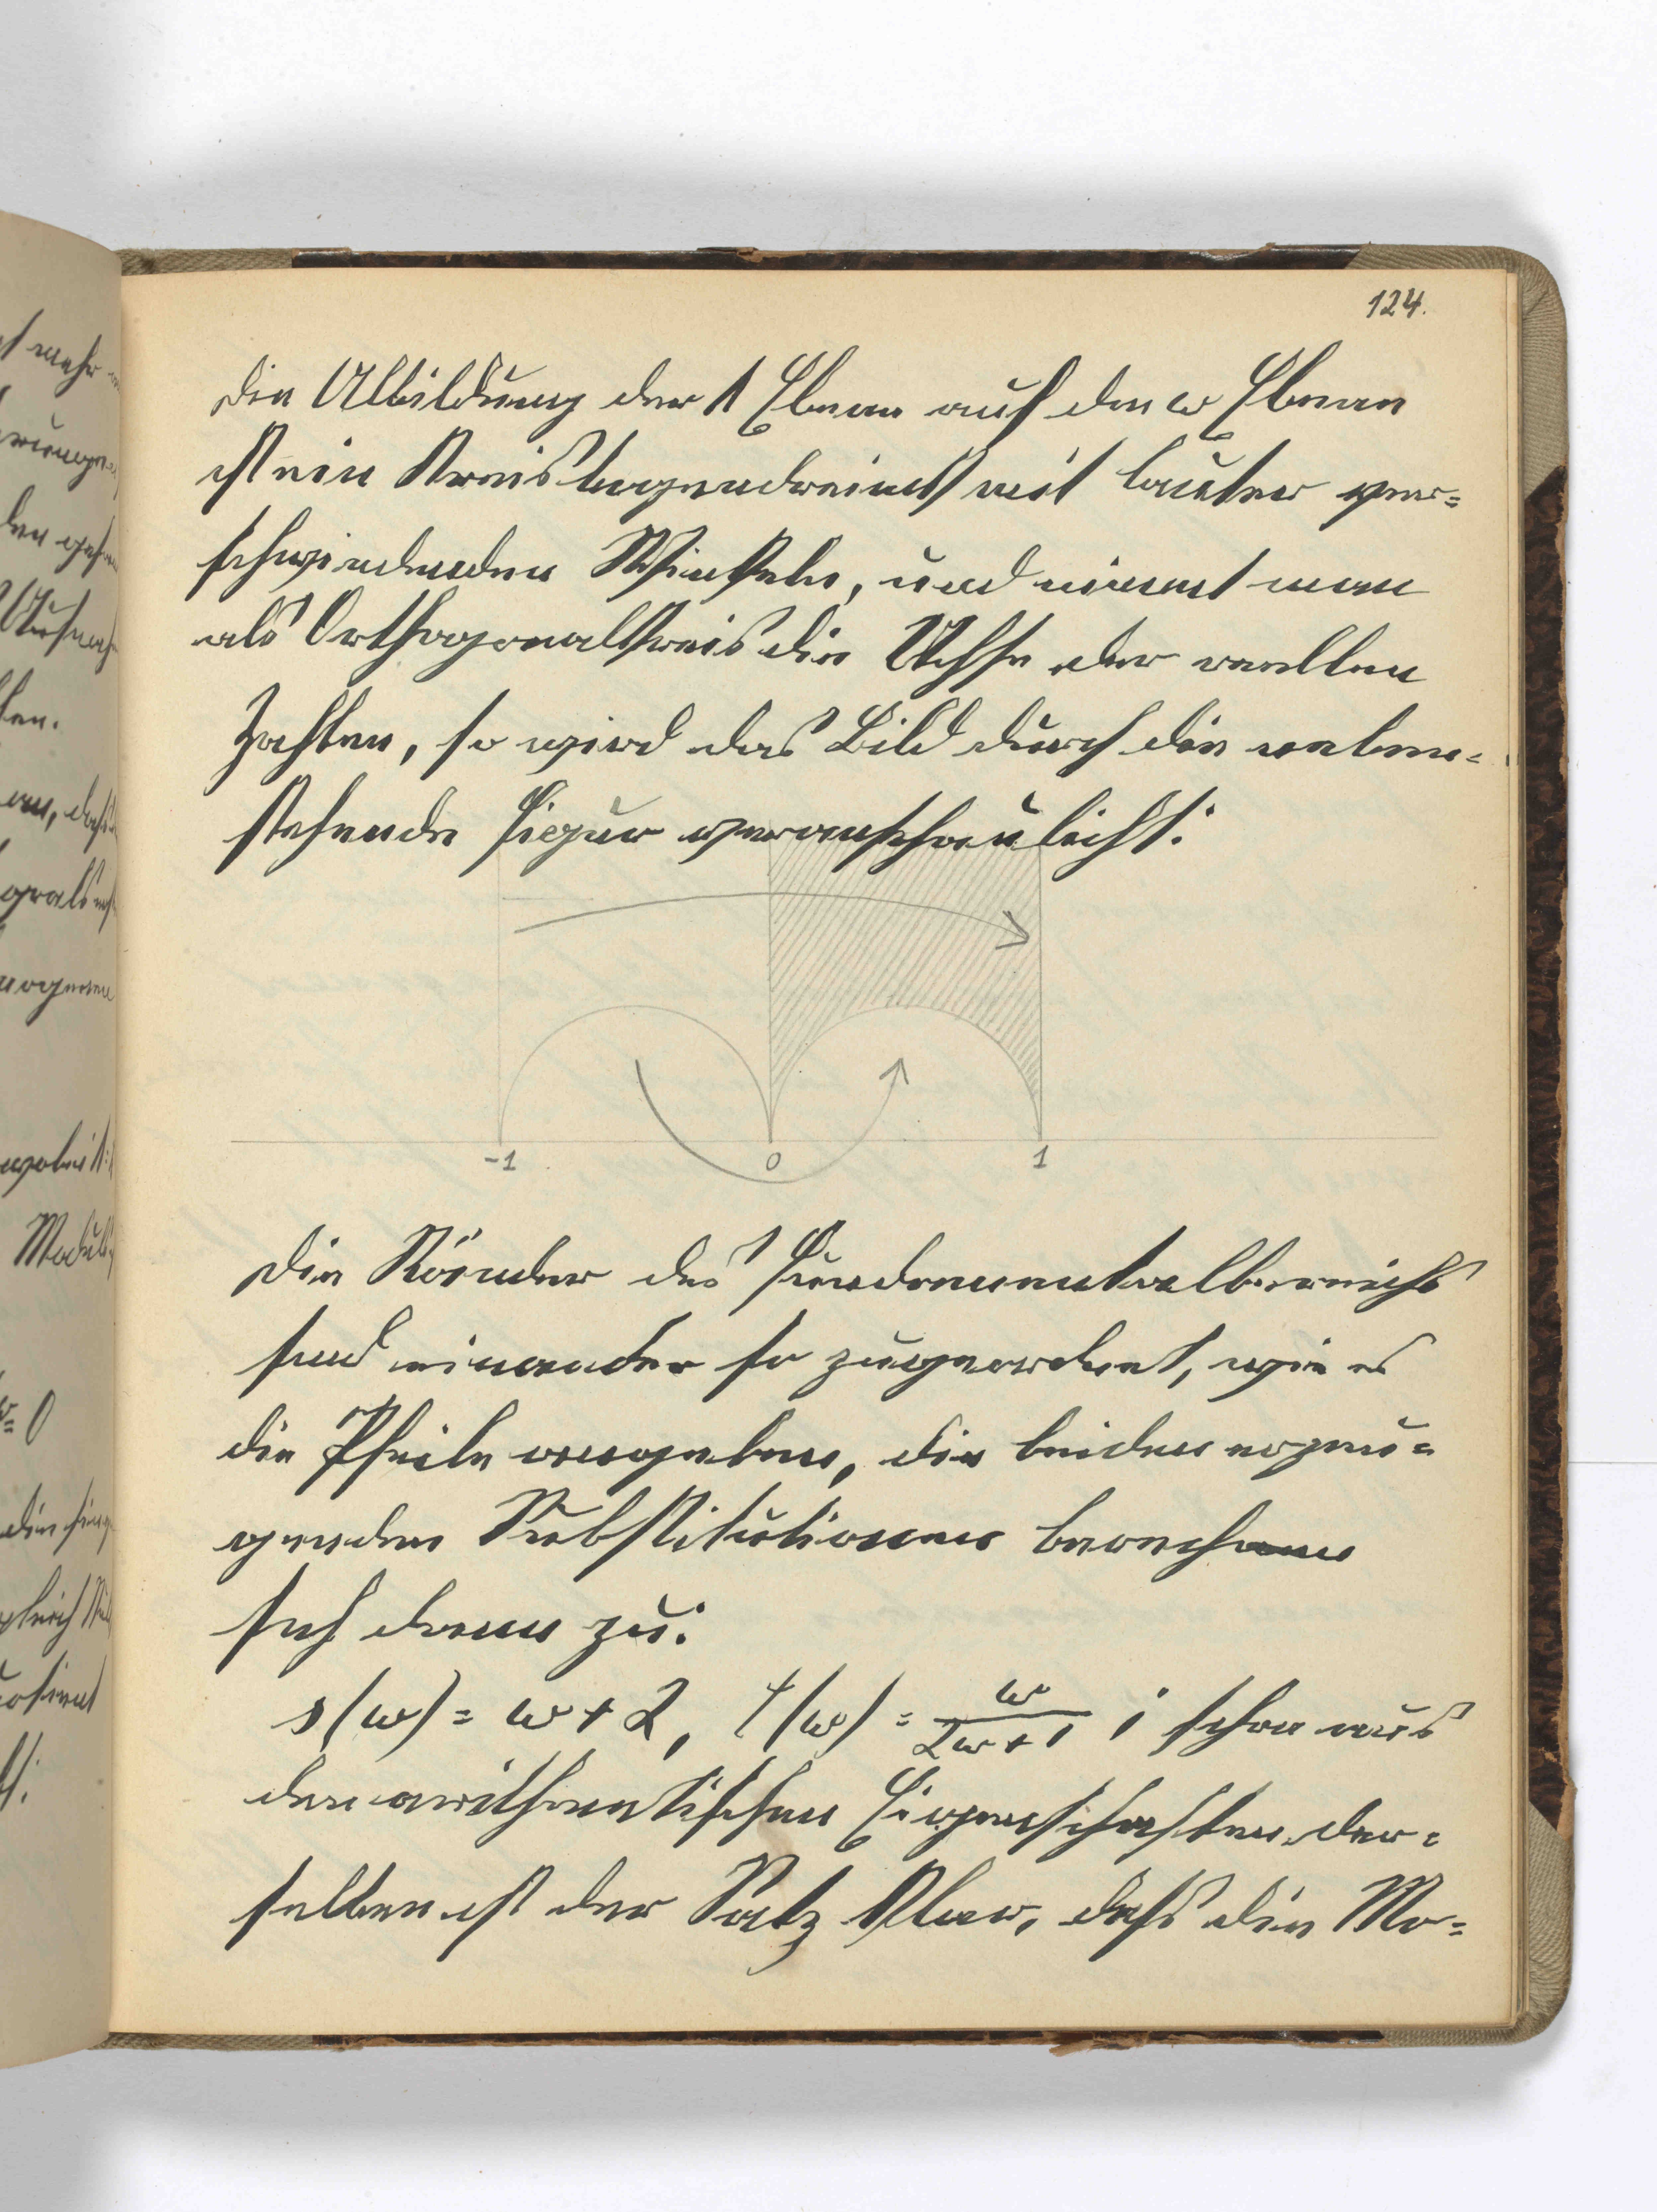 124.
Die Abbildung der λ Ebene auf die ω Ebene
ist ein Kreisbogendreieck mit lauter ver=
schwindenden Winkeln, und nimmt man
als Orthogonalkreis die Achse der reellen
Zahlen, so wird das Bild durch die neben=
stehende Figur veranschaulicht:
-1 0 1
Die Ränder des Fundamentalbereichs
sind einander so zugeordnet, wie es
die Pfeile angeben, die beiden erzeu=
genden Substitutionen berech
sich dann zu:
s(ω) = ω + 2, t(ω) = ω/(2ω+1); schon aus
den arithmetischen Eigenschaften der=
selben ist der Satz klar, daß die Mo=